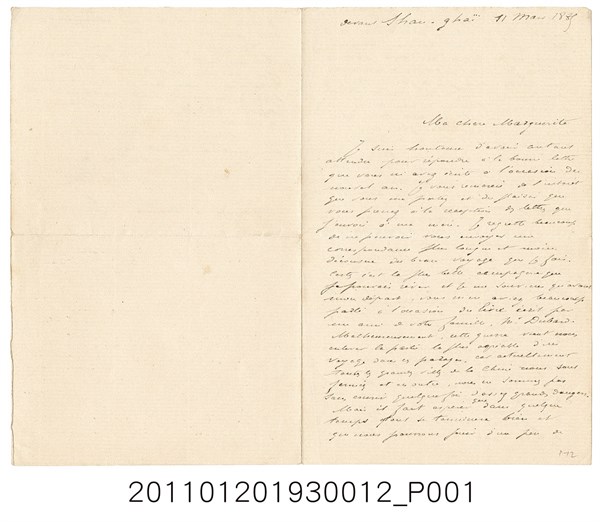 devant Shan-ghaï 11 Mars 1885
Ma chère Marguerite
Je suis honteuse d'avoir autant
attendu pour répondre à la bonne lettre
que vous m'avez écrite à l'occasion du
nouvel an. Je vous remercie de l'intérêt
que vous me portez et du plaisir que
vous prenez à la réception des lettres que
j'envoie à ma mère. Je regrette beaucoup
de ne pouvoir vous envoyer une
correspondance plus longue et moins
décousue du beau voyage que je fais.
C'est la plus belle campagne que
je pouvais rêver et je me souviens qu'avant
mon départ, vous m'en aviez beaucoup
parlé à l'occasion du livre écrit par
un ami de votre famille, Mr Dubard.
Malheureusement, cette guerre vient nous
enlever la partie la plus agréable d'un
voyage dans ces parages, car actuellement
toutes les grandes villes de la Chine nous sont
fermées et en outre, nous ne sommes pas
sans courir quelquefois d'assez grands dangers.
Mais il faut espérer que dans quelque
temps tout se terminera bien et
que nous pourrons jouir d'un peu de
112
201101201930012_P001